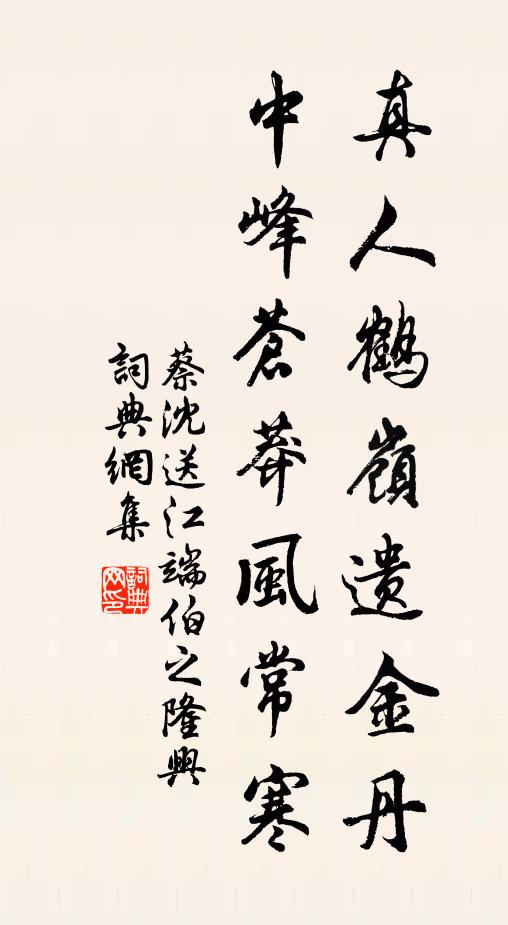 真人鶴嶺遺金丹
中峰蒼莽風常寒
蔡沈送江端伯之隆興
詞典網集
詞典
网印